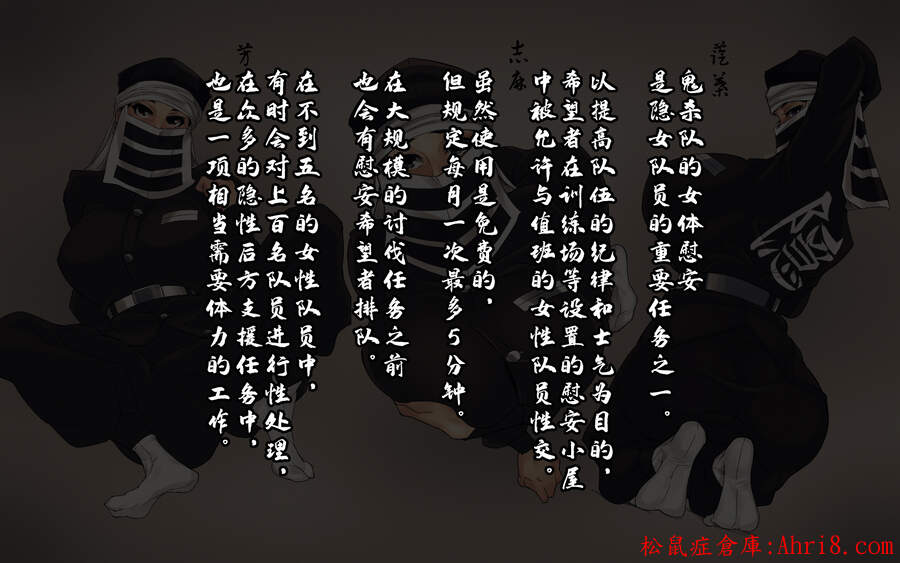 鬼杀队的女体慰安
是隐女队员的重要任务之一。
以提高队伍的纪律和士气为目的，
希望者在训练场等设置的慰安小屋
中被允许与值班的女性队员性交。
虽然使用是免费的，
但规定每月一次最多5分钟。
在大规模的讨伐任务之前
也会有慰安希望者排队。
在不到五名的女性队员中，
有时会对上百名队员进行性处理，
在众多的隐性后方支援任务中，
也是一项相当需要体力的工作。
松鼠症倉庫:Ahri8.com